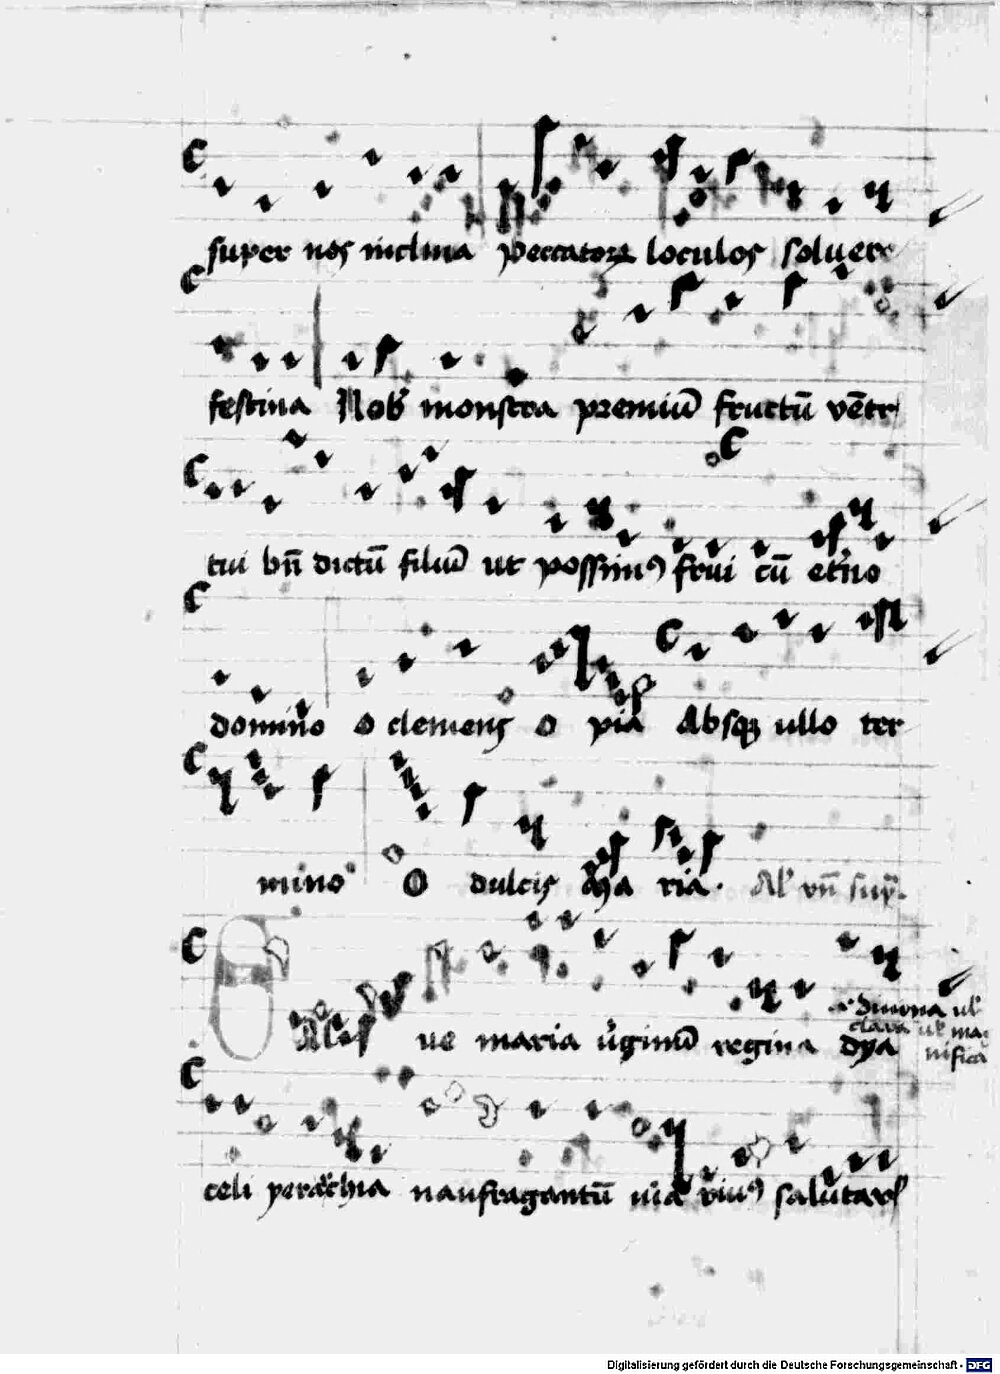 super nos inclina peccatorum loculos soluere
festina Nob' monstra premiū fructū vētr
tui bn̄ dictū filiū ut possim9 frui cū et'no
domino o clemens o pia Absq3 ullo ter
mino O dulcis Ma ria. Al' vn̄ sup.
ue maria u'ginū regina dya
ul'
clara ul' ma
nifica
celi naufragantū salutar
Digitalisierung gefördert durch die Deutsche Forschungsgemeinschaft - DFG